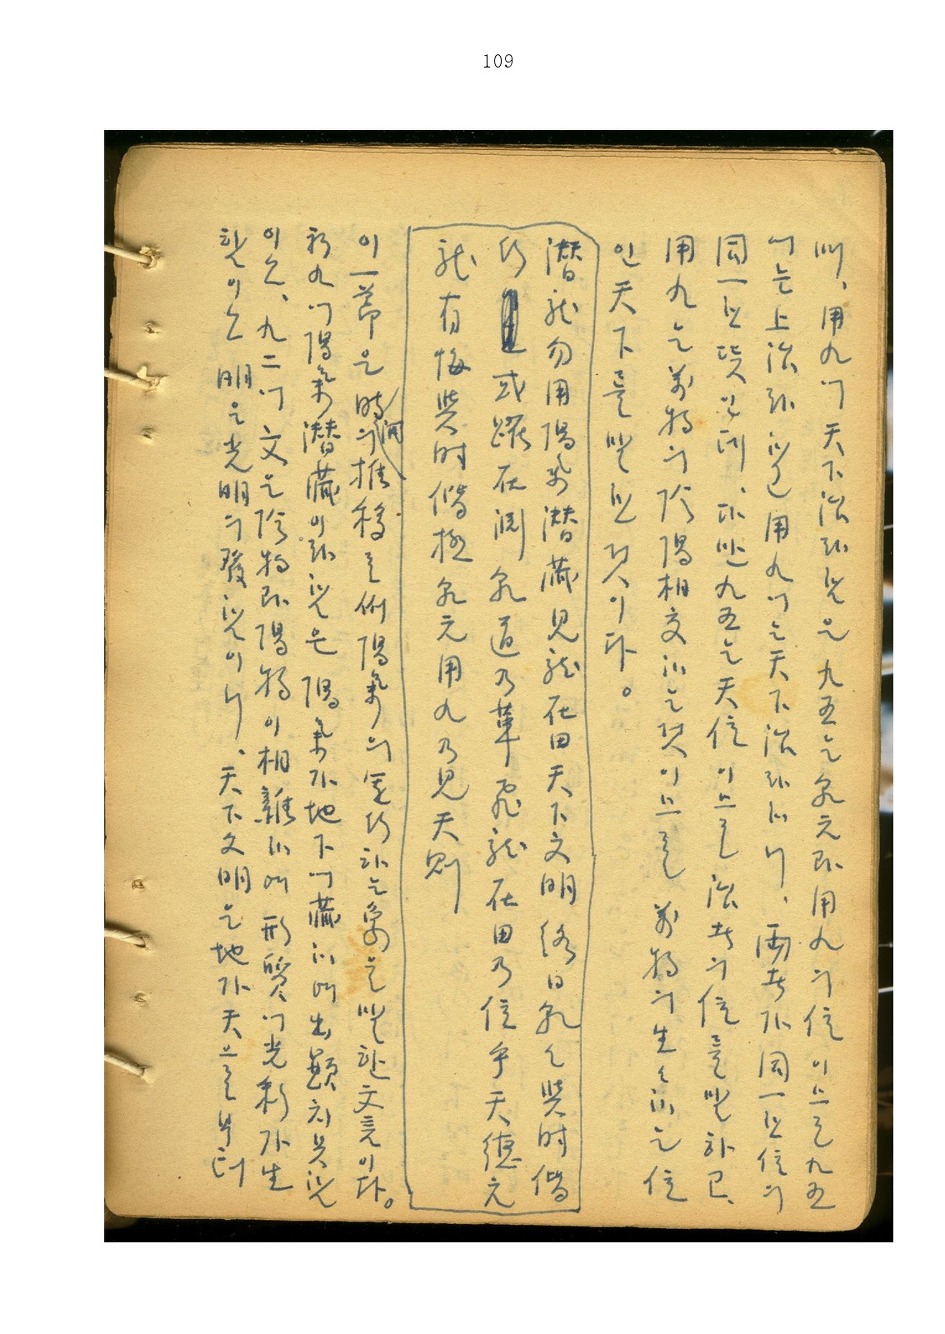 109
에, 用九에 天下治라 함은 九五는 乾元과 用九의 位이므로 九五
에는 上治라 하고 用九에는 天下治라 하니, 兩者가 同一한 位의
同一한 것인데, 다만 九五는 天位이므로 治者의 位를 말하고,
用九는 萬物의 陰陽相交하는 것이므로 萬物의 生生하는 位
인 天下를 말한 것이다。
潛龍勿用陽氣潛藏見龍在田天下文明終日乾乾與時偕
行 或躍在淵乾道乃革飛龍在田乃位乎天德亢
龍有悔與時偕極乾元用九乃見天則
이 一節은 時間의 推移로써 陽氣의 運行하는 象을 말한 文言이다。
初九에 陽氣潛藏이라 함은 陽氣가 地下에 藏하여 出顯치 못함
이오、九二에 文은 陰物과 陽物이 相雜하여 形質에 光彩가 生
함이오 明은 光明의 發함이니、天下文明은 地가 天으로부터